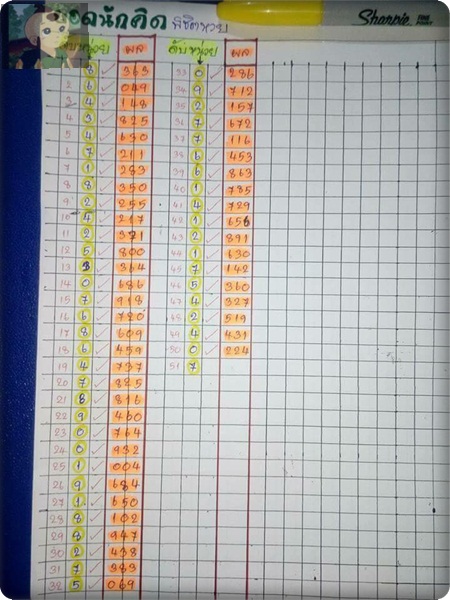 Sharpie FINE POINT
ยอดนักคิด พิชิตหวย
ดับหน่วย ผล ดับหน่วย ผล
8 363 33 0 286
2 6 049 34 9 712
3 4 148 35 2 157
4 3 825 36 7 672
5 4 650 37 7 116
6 7 211 38 6 453
7 1 283 39 6 863
8 8 350 40 1 785
9 2 255 41 4 729
10 4 217 42 1 656
11 2 371 43 2 891
12 5 800 44 1 630
13 3 364 45 7 142
14 0 686 46 5 360
15 7 918 47 4 327
16 6 720 48 2 519
17 8 609 49 4 431
18 6 459 50 0 224
19 4 737 51 7
20 7 825
21 8 816
22 9 460
23 0 764
24 0 932
25 1 004
26 9 684
27 1 650
28 8 102
29 8 947
30 2 438
31 7 383
32 5 069